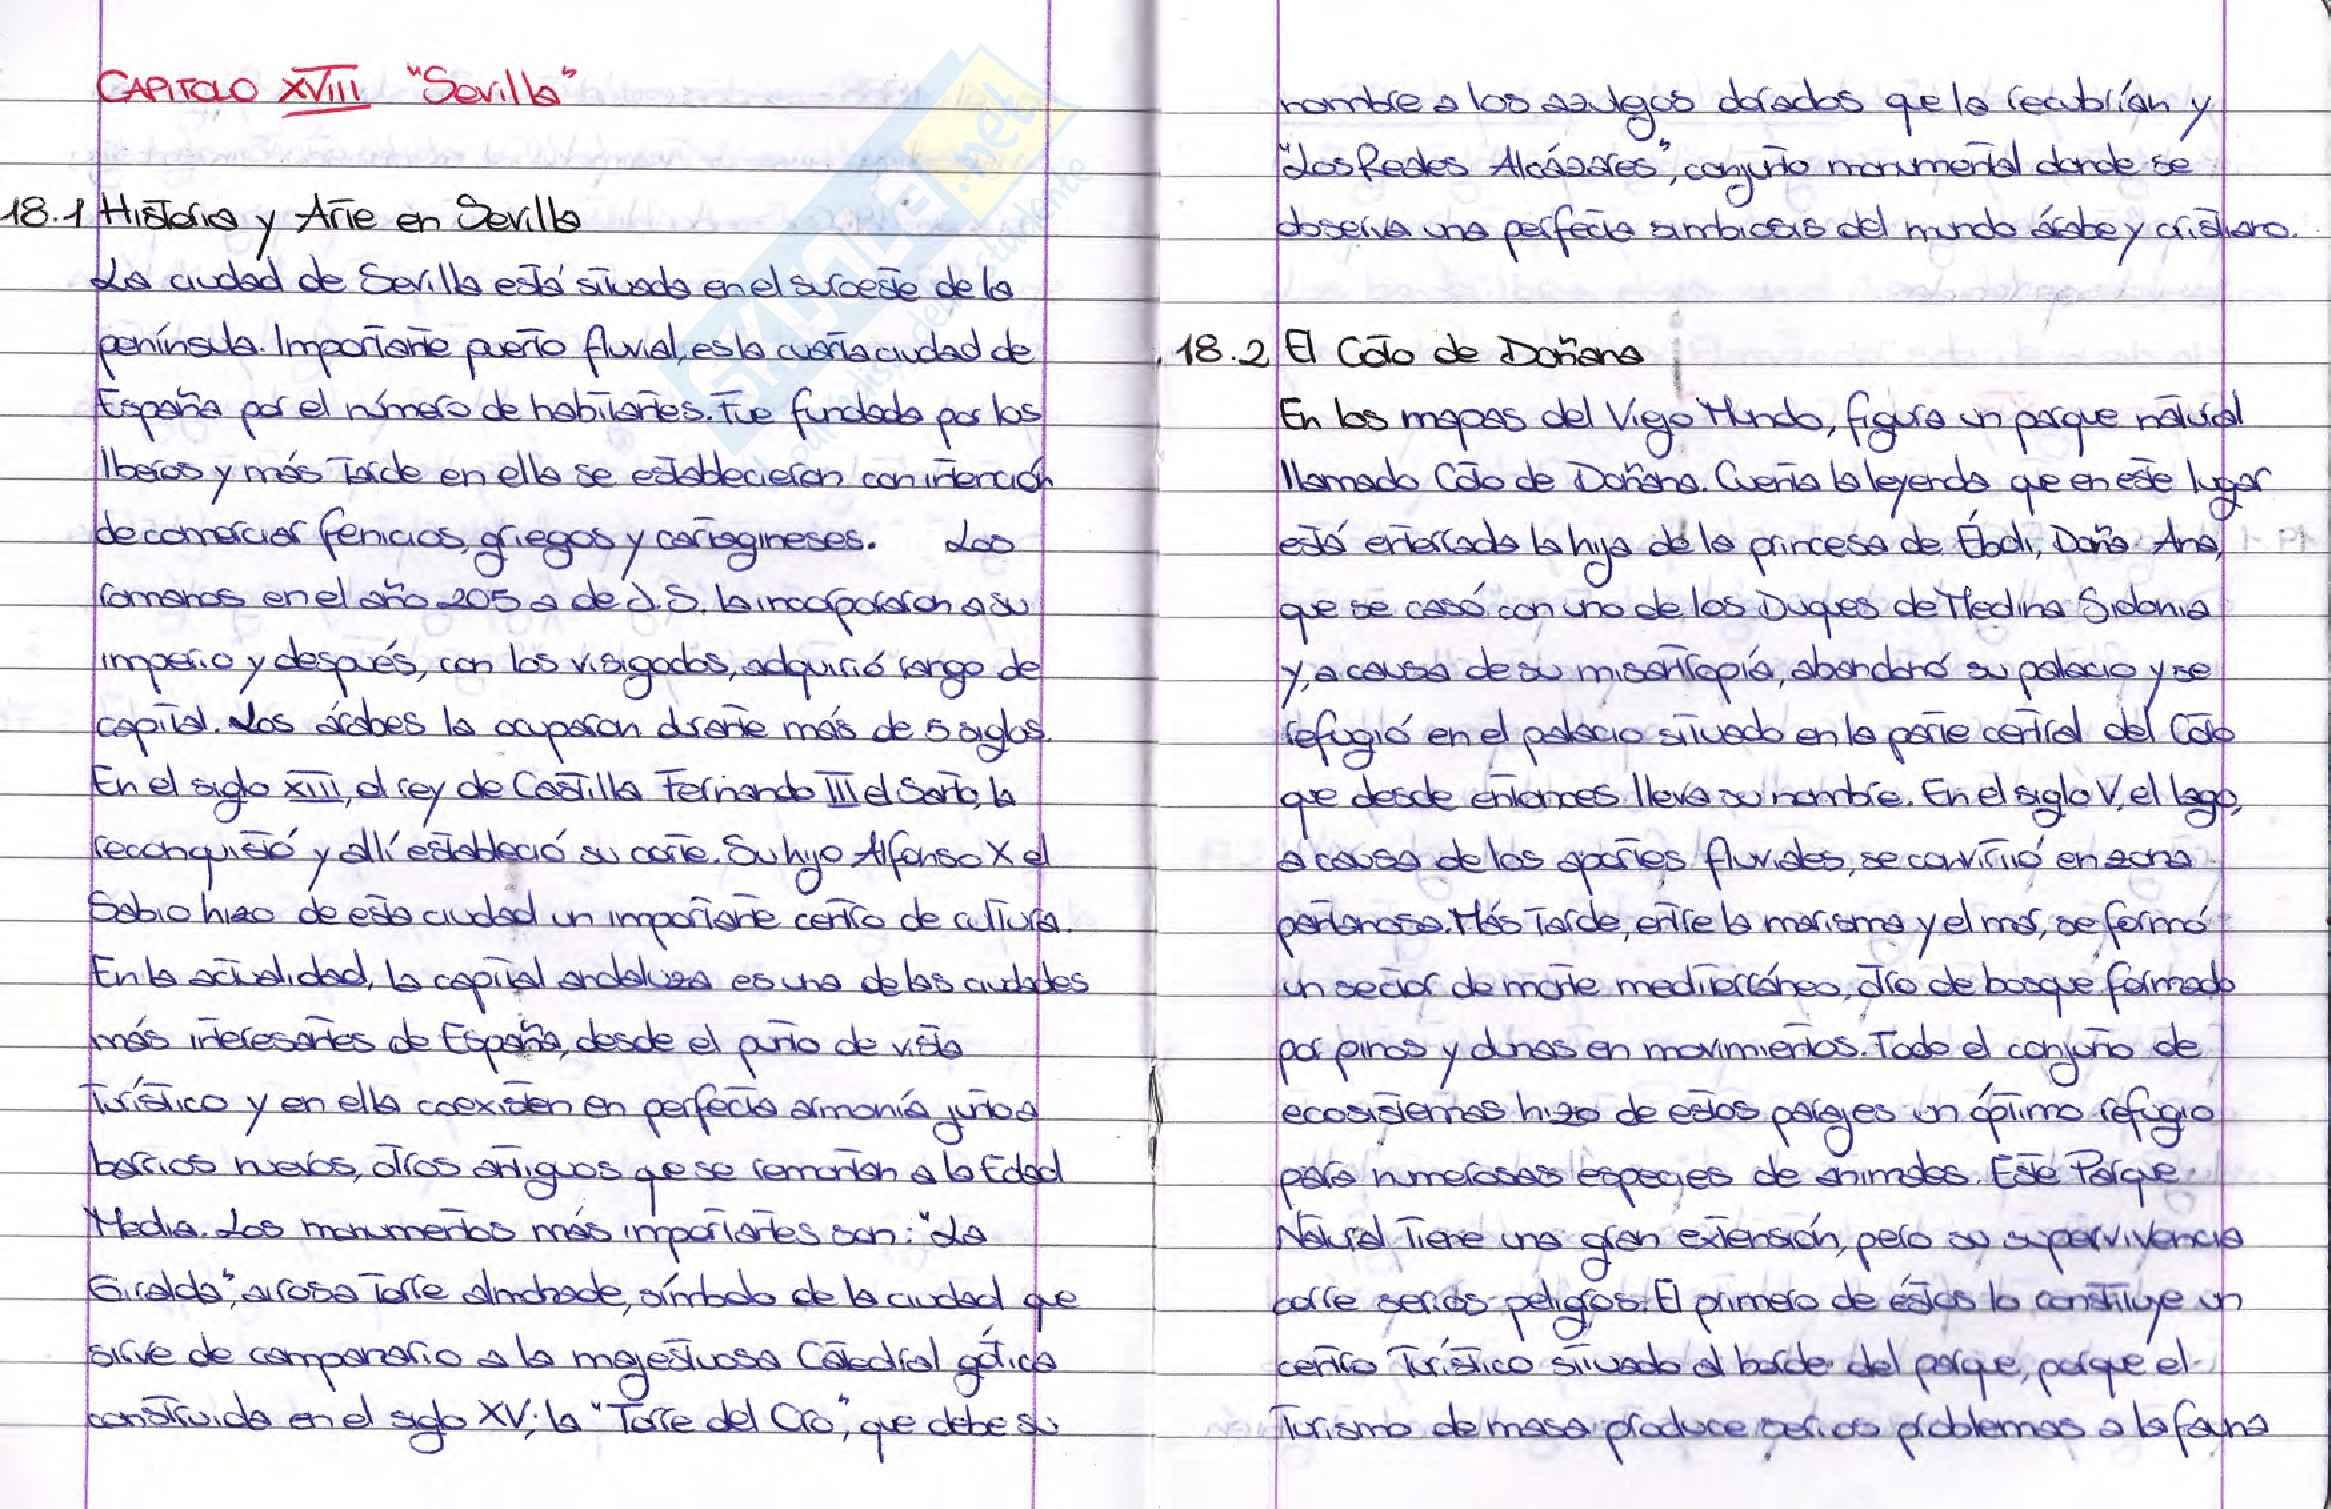 CAPITOLO XVIII "Sevilla"
18.1 Historia y Arte en Sevilla
La ciudad de Sevilla está situada en el suroeste de la
península. Importante puerto fluvial, es la cuarta ciudad de
España por el número de habitantes. Fue fundada por los
Iberos y más tarde en ella se establecieron con intención
de comerciar fenicios, griegos y cartagineses. Los
romanos en el año 205 a de J.S. la incorporaron a su
imperio y después, con los visigodos, adquirió rango de
capital. Los árabes la ocuparon durante más de 5 siglos.
En el siglo XIII, el rey de Castilla Fernando III el Santo, la
reconquistó y allí estableció su corte. Su hijo Alfonso X el
Sabio hizo de esta ciudad un importante centro de cultura.
En la actualidad, la capital andaluza es una de las ciudades
más interesantes de España, desde el punto de vista
turístico y en ella coexisten en perfecta armonía junto a
barrios nuevos, otros antiguos que se remontan a la Edad
Media. Los monumentos más importantes son: "La
Giralda", airosa torre almohade, símbolo de la ciudad que
sirve de campanario a la majestuosa Catedral gótica
construida en el siglo XV; la "Torre del Oro", que debe su
nombre a los azulejos dorados que la recubrían y
"Los Reales Alcázares", conjunto monumental donde se
observa una perfecta simbiosis del mundo árabe y cristiano.
18.2 El Coto de Doñana
En los mapas del Viejo Mundo, figura un parque natural
llamado Coto de Doñana. Cuenta la leyenda que en este lugar
está enterrada la hija de la princesa de Éboli, Doña Ana,
que se casó con uno de los Duques de Medina Sidonia
y, a causa de su misantropía, abandonó su palacio y se
refugió en el palacio situado en la parte central del Coto
que desde entonces lleva su nombre. En el siglo V, el lago,
a causa de los aportes fluviales, se convirtió en zona
pantanosa. Más tarde, entre la marisma y el mar, se formó
un sector de monte mediterráneo, otro de bosque formado
por pinos y dunas en movimientos. Todo el conjunto de
ecosistemas hizo de estos parajes un óptimo refugio
para numerosas especies de animales. Este Parque
Natural tiene una gran extensión, pero su supervivencia
corre serios peligros. El primero de éstos lo constituye un
centro turístico situado al borde del parque, porque el
turismo de masa produce serios problemas a la fauna
SKUOLA.net